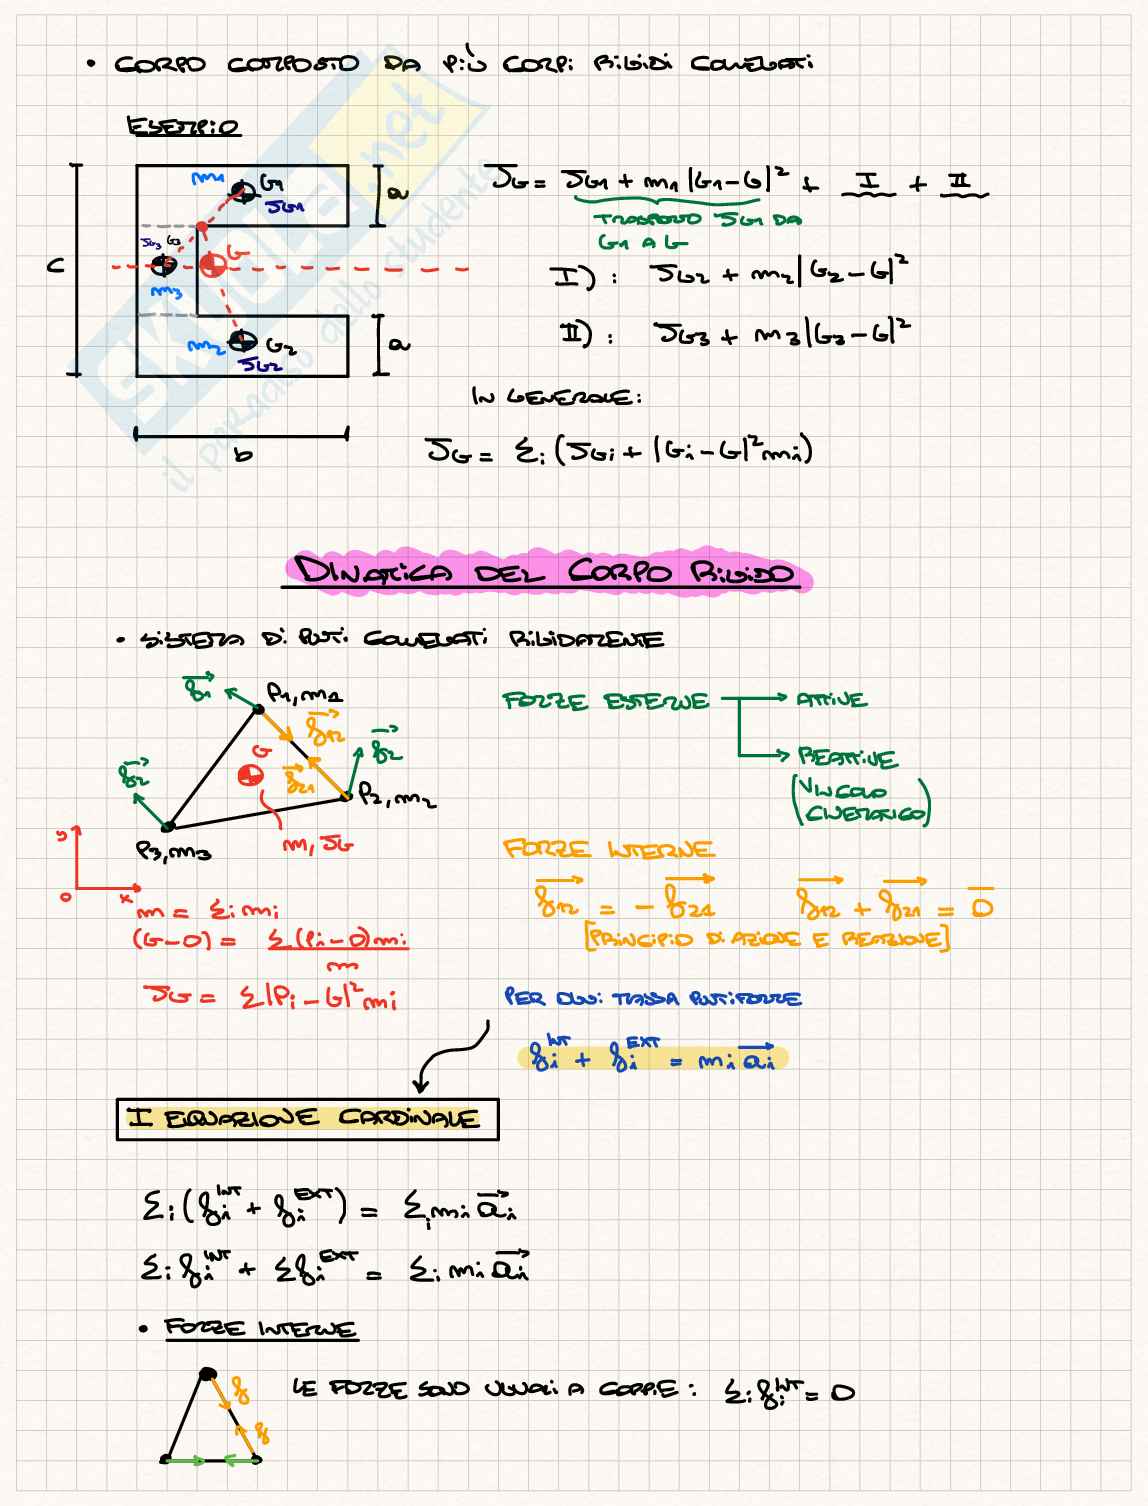 • CORPO COMPOSTO DA PIÙ CORPI RIGIDI COLLEGATI
ESEMPIO
m1 G1
JG1
a
C
JG3 G3
G
m3
m2 G2
JG2
a
b
JG = JG1 + m1 |G1-G|² + I + II
TRASPORTO JG1 DA
G1 A G
I) : JG2 + m2 |G2-G|²
II) : JG3 + m3 |G3-G|²
IN GENERALE:
JG = Σi (JGi + |Gi-G|² mi)
SKUOLA.net
il paradiso dello studente
DINAMICA DEL CORPO RIGIDO
• SISTEMA DI PUNTI COLLEGATI RIGIDAMENTE
f1 P1, m1
f12
f2
G
f2
f21
P2, m2
P3, m3
m, JG
y
o x
m = Σi mi
(G-O) = Σ(Pi-O)mi
m
JG = Σ|Pi-G|² mi
FORZE ESTERNE → ATTIVE
→ REATTIVE
(VINCOLO
CINEMATICO)
FORZE INTERNE
f12 = - f21 f12 + f21 = 0
[PRINCIPIO DI AZIONE E REAZIONE]
PER OGNI MASSA PUNTIFORME
fi INT + fi EXT = mi ai
I EQUAZIONE CARDINALE
Σi (fi INT + fi EXT) = Σi mi ai
Σi fi INT + Σ fi EXT = Σi mi ai
• FORZE INTERNE
f
f
LE FORZE SONO UGUALI A COPPIE : Σi fi INT = 0